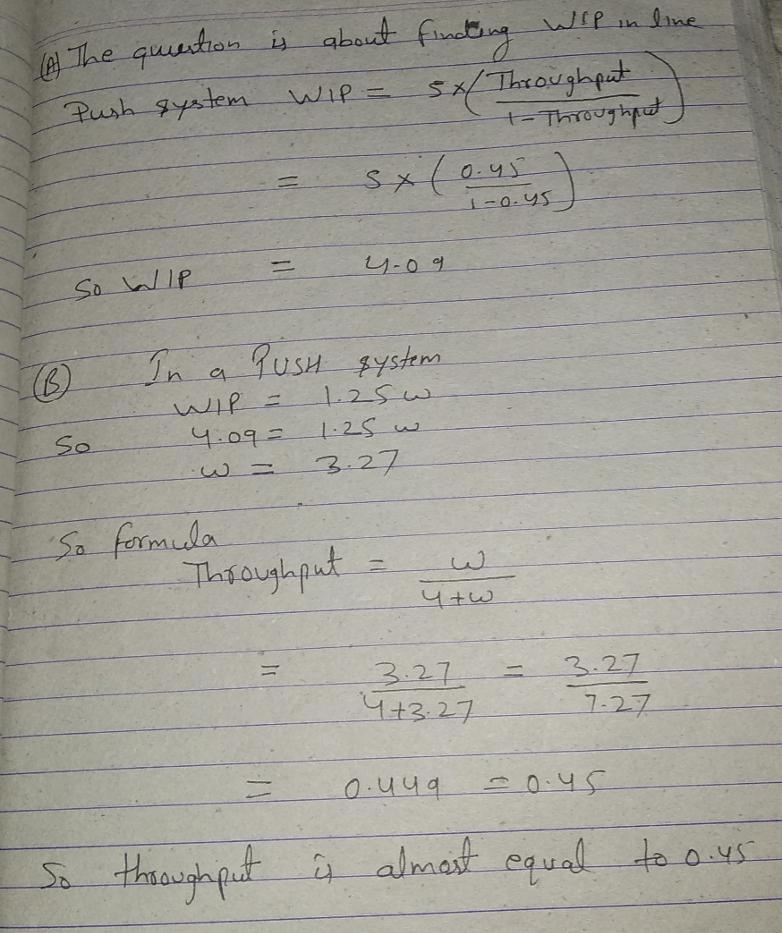 (A) The question is about finding WIP in line
Push system WIP = 5 × (Throughput / 1 - Throughput)
= 5 × (0.45 / 1-0.45)
So WIP = 4.09
(B) In a PUSH system
WIP = 1.25 w
So 4.09 = 1.25 w
w = 3.27
So formula
Throughput = w / 4+w
= 3.27 / 4+3.27 = 3.27 / 7.27
= 0.449 = 0.45
So throughput is almost equal to 0.45